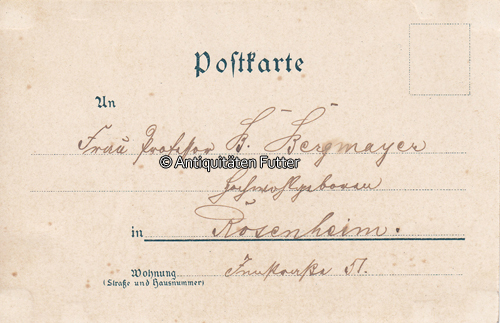 Postkarte
An
Frau Professor B. Bergmayer
© Antiquitäten Futter
Hochwohlgeboren
in Rosenheim.
Wohnung Innstraße 51.
(Straße und Hausnummer)